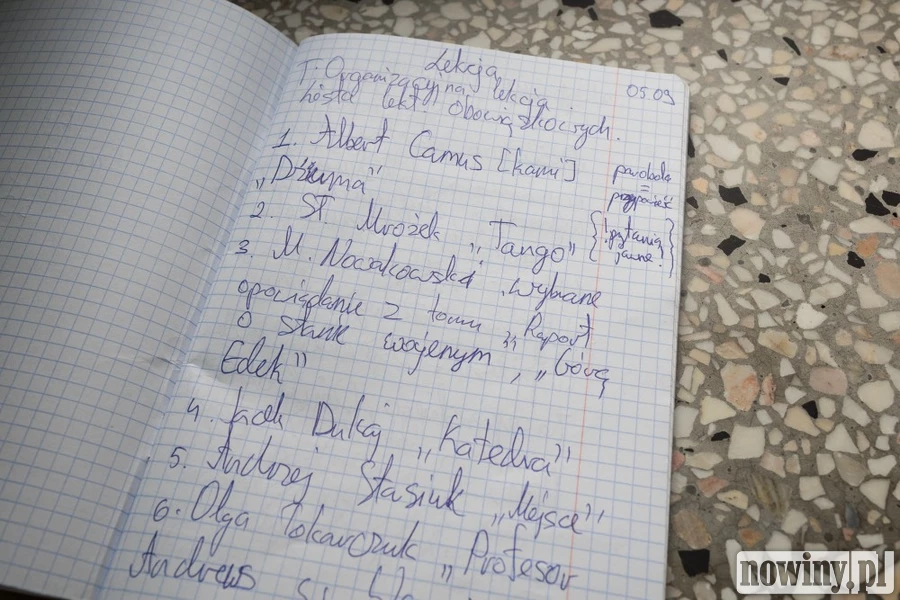 Lekcja
05.09
T: Organizacyjna lekcja.
Lista lekt. obowiązkowych.
1. Albert Camus [kami]
„Dżuma"
parabola
=
przypowieść
2. ST Mrożek „Tango"
{!pytania
jawne.}
3. M. Nowakowski, wybrane
opowiadanie z tomu „Raport
o stanie wojenym", „Górą
Edek"
4. Jacek Dukaj „Katedra"
5. Andrzej Stasiuk „Miejsce"
6. Olga Tokarczuk „Profesor
Andrews
nowiny.pl